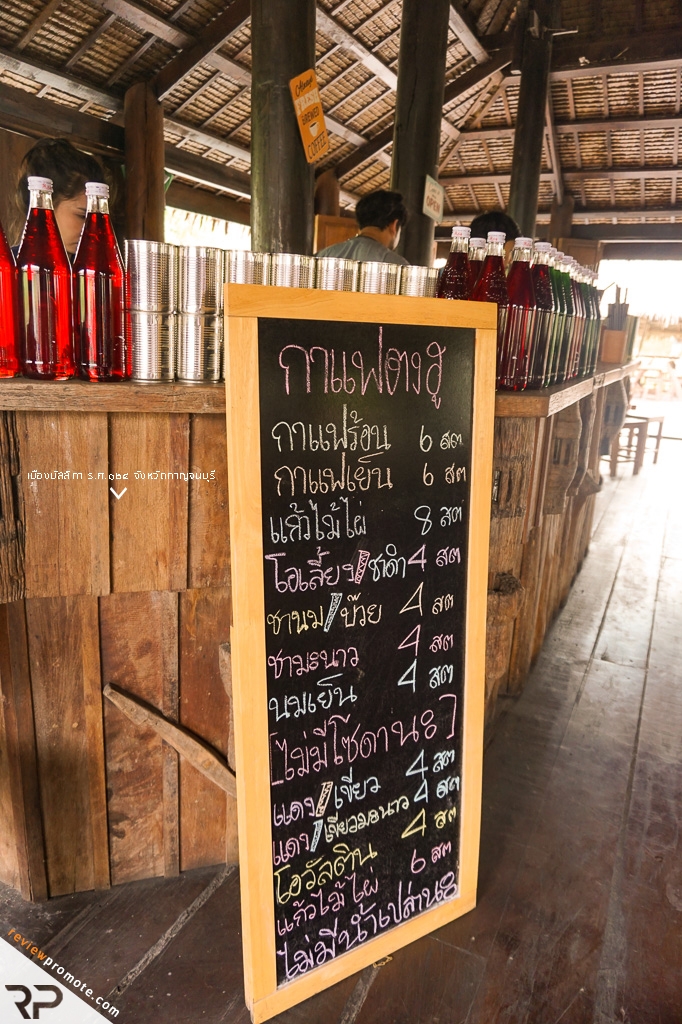 Always
BREWED
COFFEE
OPEN
กาแฟตงฮู
กาแฟร้อน 6 สต
กาแฟเย็น 6 สต
แก้วไม้ไผ่ 8 สต
โอเลี้ยง/ชาดำ 4 สต
ชานม/บ๊วย 4 สต
ชามะนาว 4 สต
นมเย็น 4 สต
[ไม่มีโซดานะ]
แดง/เขียว 4 สต
แดง/เขียวมะนาว 4 สต
โอวัลติน 4 สต
แก้วไม้ไผ่ 6 สต
ไม่มีน้ำเปล่านะ
เมืองมัลลิกา ร.ศ.๑๒๔ จังหวัดกาญจนบุรี
reviewpromote.com
RP